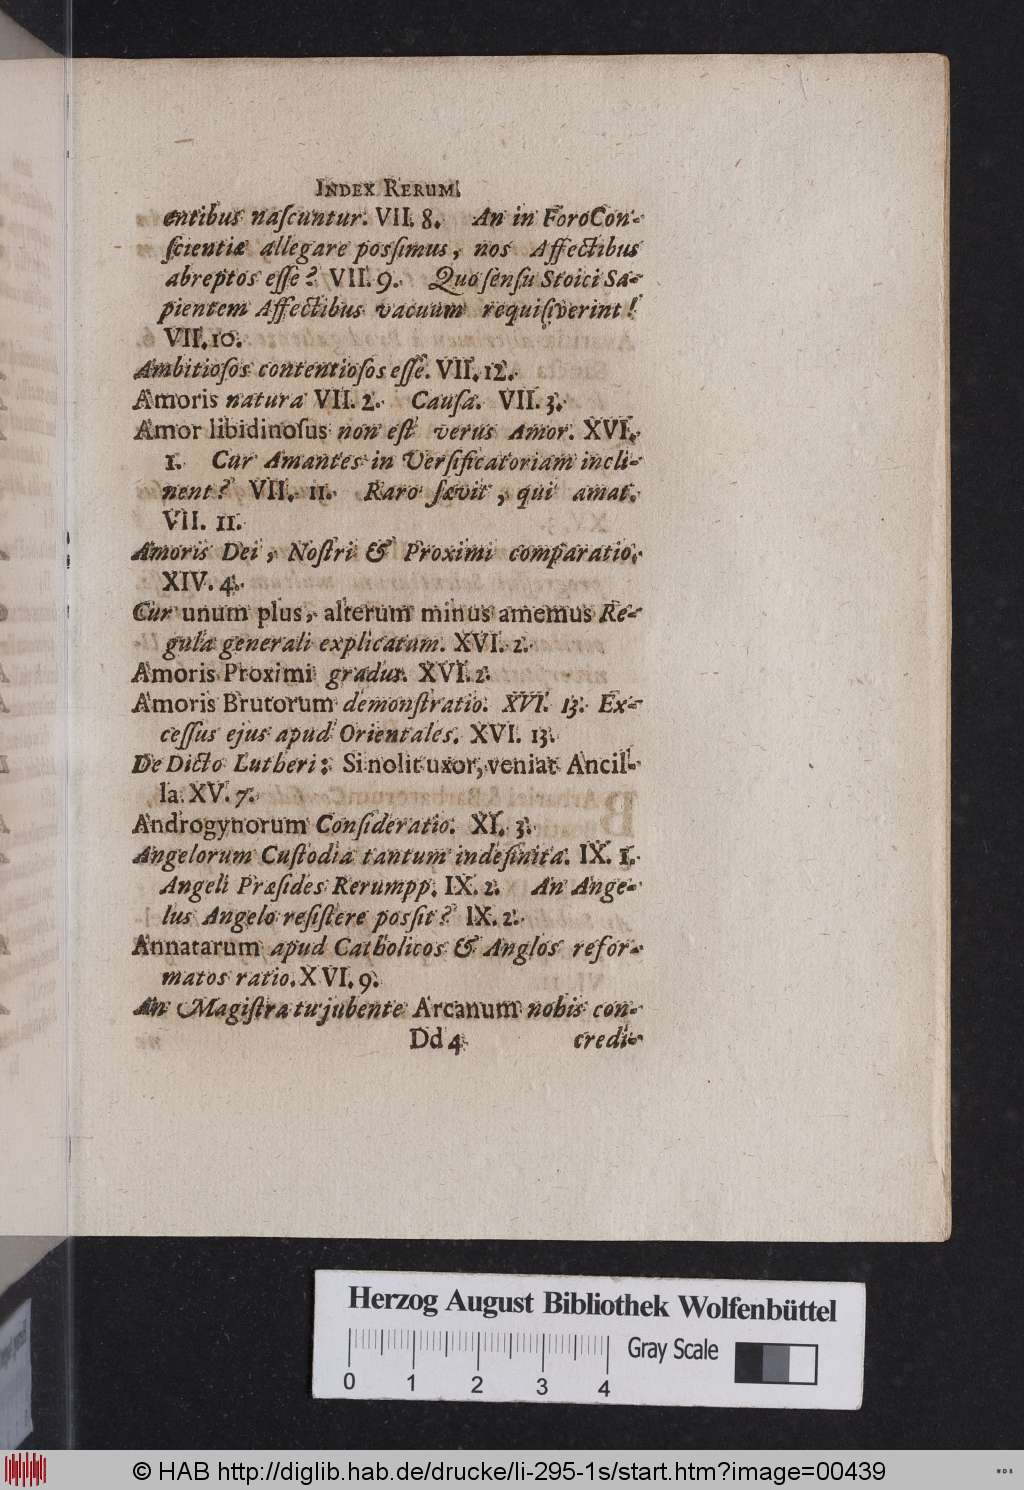 INDEX RERUM.
entibus naſcuntur. VII. 8. An in Foro Con-
ſcientiæ allegare poſſimus, nos Affectibus
abreptos eſſe? VII. 9. Quo ſenſu Stoici Sa-
pientem Affectibus vacuum requiſiverint!
VII. 10.
Ambitioſos contentioſos eſſe. VII. 12.
Amoris natura VII. 2. Cauſa. VII. 3.
Amor libidinoſus non eſt verus Amor. XVI.
1. Cur Amantes in Verſificatoriam incli-
nent? VII. 11. Raro ſævit, qui amat.
VII. 11.
Amoris Dei, Noſtri & Proximi comparatio.
XIV. 4.
Cur unum plus, alterum minus amemus Re-
gula generali explicatum. XVI. 2.
Amoris Proximi gradus. XVI. 2.
Amoris Brutorum demonſtratio. XVI. 13. Ex-
ceſſus ejus apud Orientales. XVI. 13.
De Dicto Lutheri: Si nolit uxor, veniat Ancil-
la. XV. 7.
Androgynorum Conſideratio. XI. 3.
Angelorum Cuſtodia tantum indefinita. IX. 1.
Angeli Præſides Rerumpp. IX. 2. An Ange-
lus Angelo reſiſtere poſſit? IX. 2.
Annatarum apud Catholicos & Anglos refor-
matos ratio. XVI. 9.
An Magiſtratu jubente Arcanum nobis con-
Dd 4 credi-
Herzog August Bibliothek Wolfenbüttel
Gray Scale
0 1 2 3 4
© HAB http://diglib.hab.de/drucke/li-295-1s/start.htm?image=00439